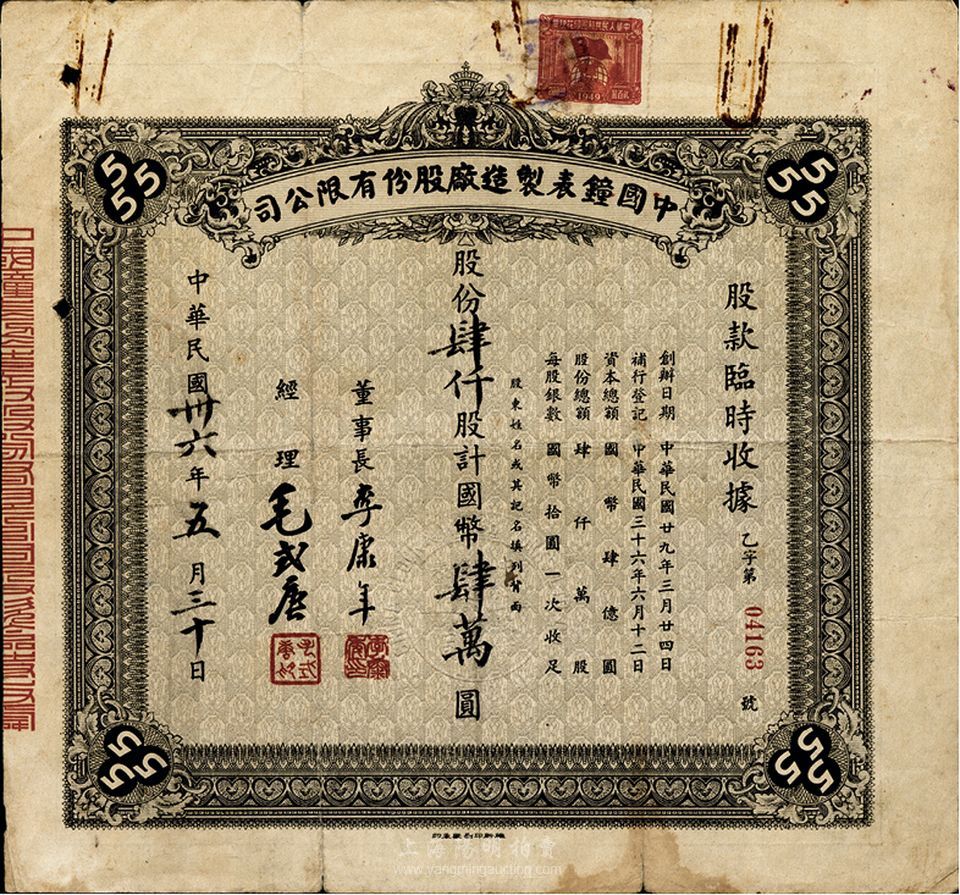 中華人民共和國印花稅票
1949
中國鐘表製造廠股份有限公司
555
555
股款臨時收據 乙字第 04163 號
創辦日期 中華民國廿九年三月廿四日
補行登記 中華民國三十六年六月十二日
資本總額 國幣肆億圓
股份總額 肆仟萬股
每股銀數 國幣拾圓一次收足
股東姓名或其記名填列背面
股份肆仟股計國幣肆萬圓
董事長 李康年
經理 毛式唐
中華民國卅六年五月三十日
555
555
上海陽明拍賣
www.yangmingauction.com